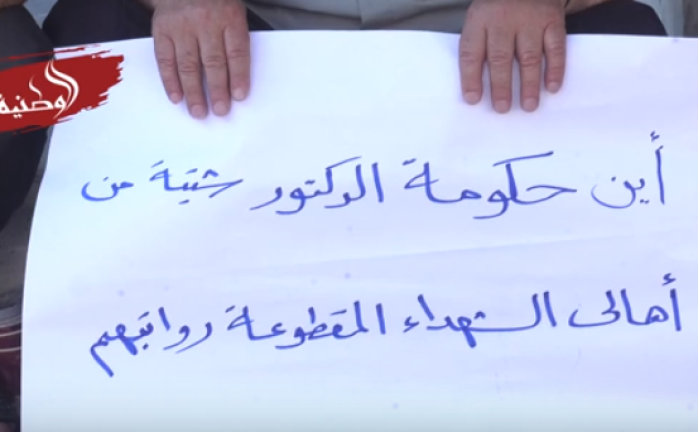 الوطنية
أين حكومة الدكتور شتية من
أهالى الشهداء المقطوعة رواتبهم